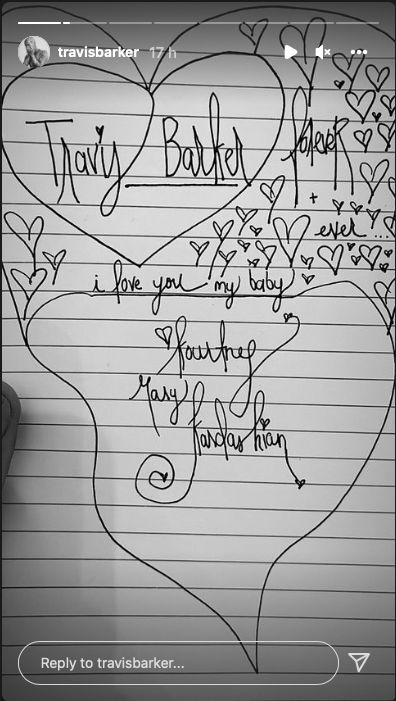 travisbarker 17 h
Travis Barker forever
+
ever...
i love you my baby
Kourtney
Mary
Kardashian
Reply to travisbarker...